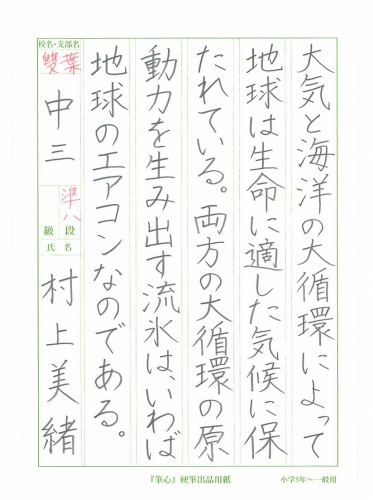 大気と海洋の大循環によって
地球は生命に適した気候に保
たれている。両方の大循環の原
動力を生み出す流氷は、いわば
地球のエアコンなのである。
校名・支部名
雙葉
中三
準八
級 段
氏 名
村上美緒
『筆心』硬筆出品用紙
小学5年～一般用